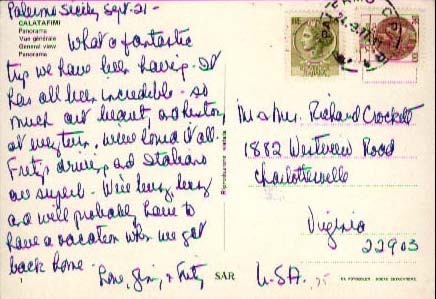 Palermo Sicily Sept-21-
CALATAFIMI
Panorama
Vue générale
General view
Panorama
What a fantastic
trip we have been having. It
has all been incredible - so
much art beauty, and history
at every turn. We've loved it all.
Fritz driving, and Italians
are superb. We're busy, busy
and will probably have to
have a vacation when we get
back home.
Love, & Fritz
SAR
Riproduzione vietata
PALERMO
Mr & Mrs. Richard Crockett
1882 Westview Road
Charlottesville
Virginia
22903
U.S.A.